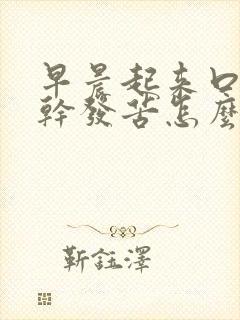 早晨起来口
幹發苦怎麼
靳鈺澤